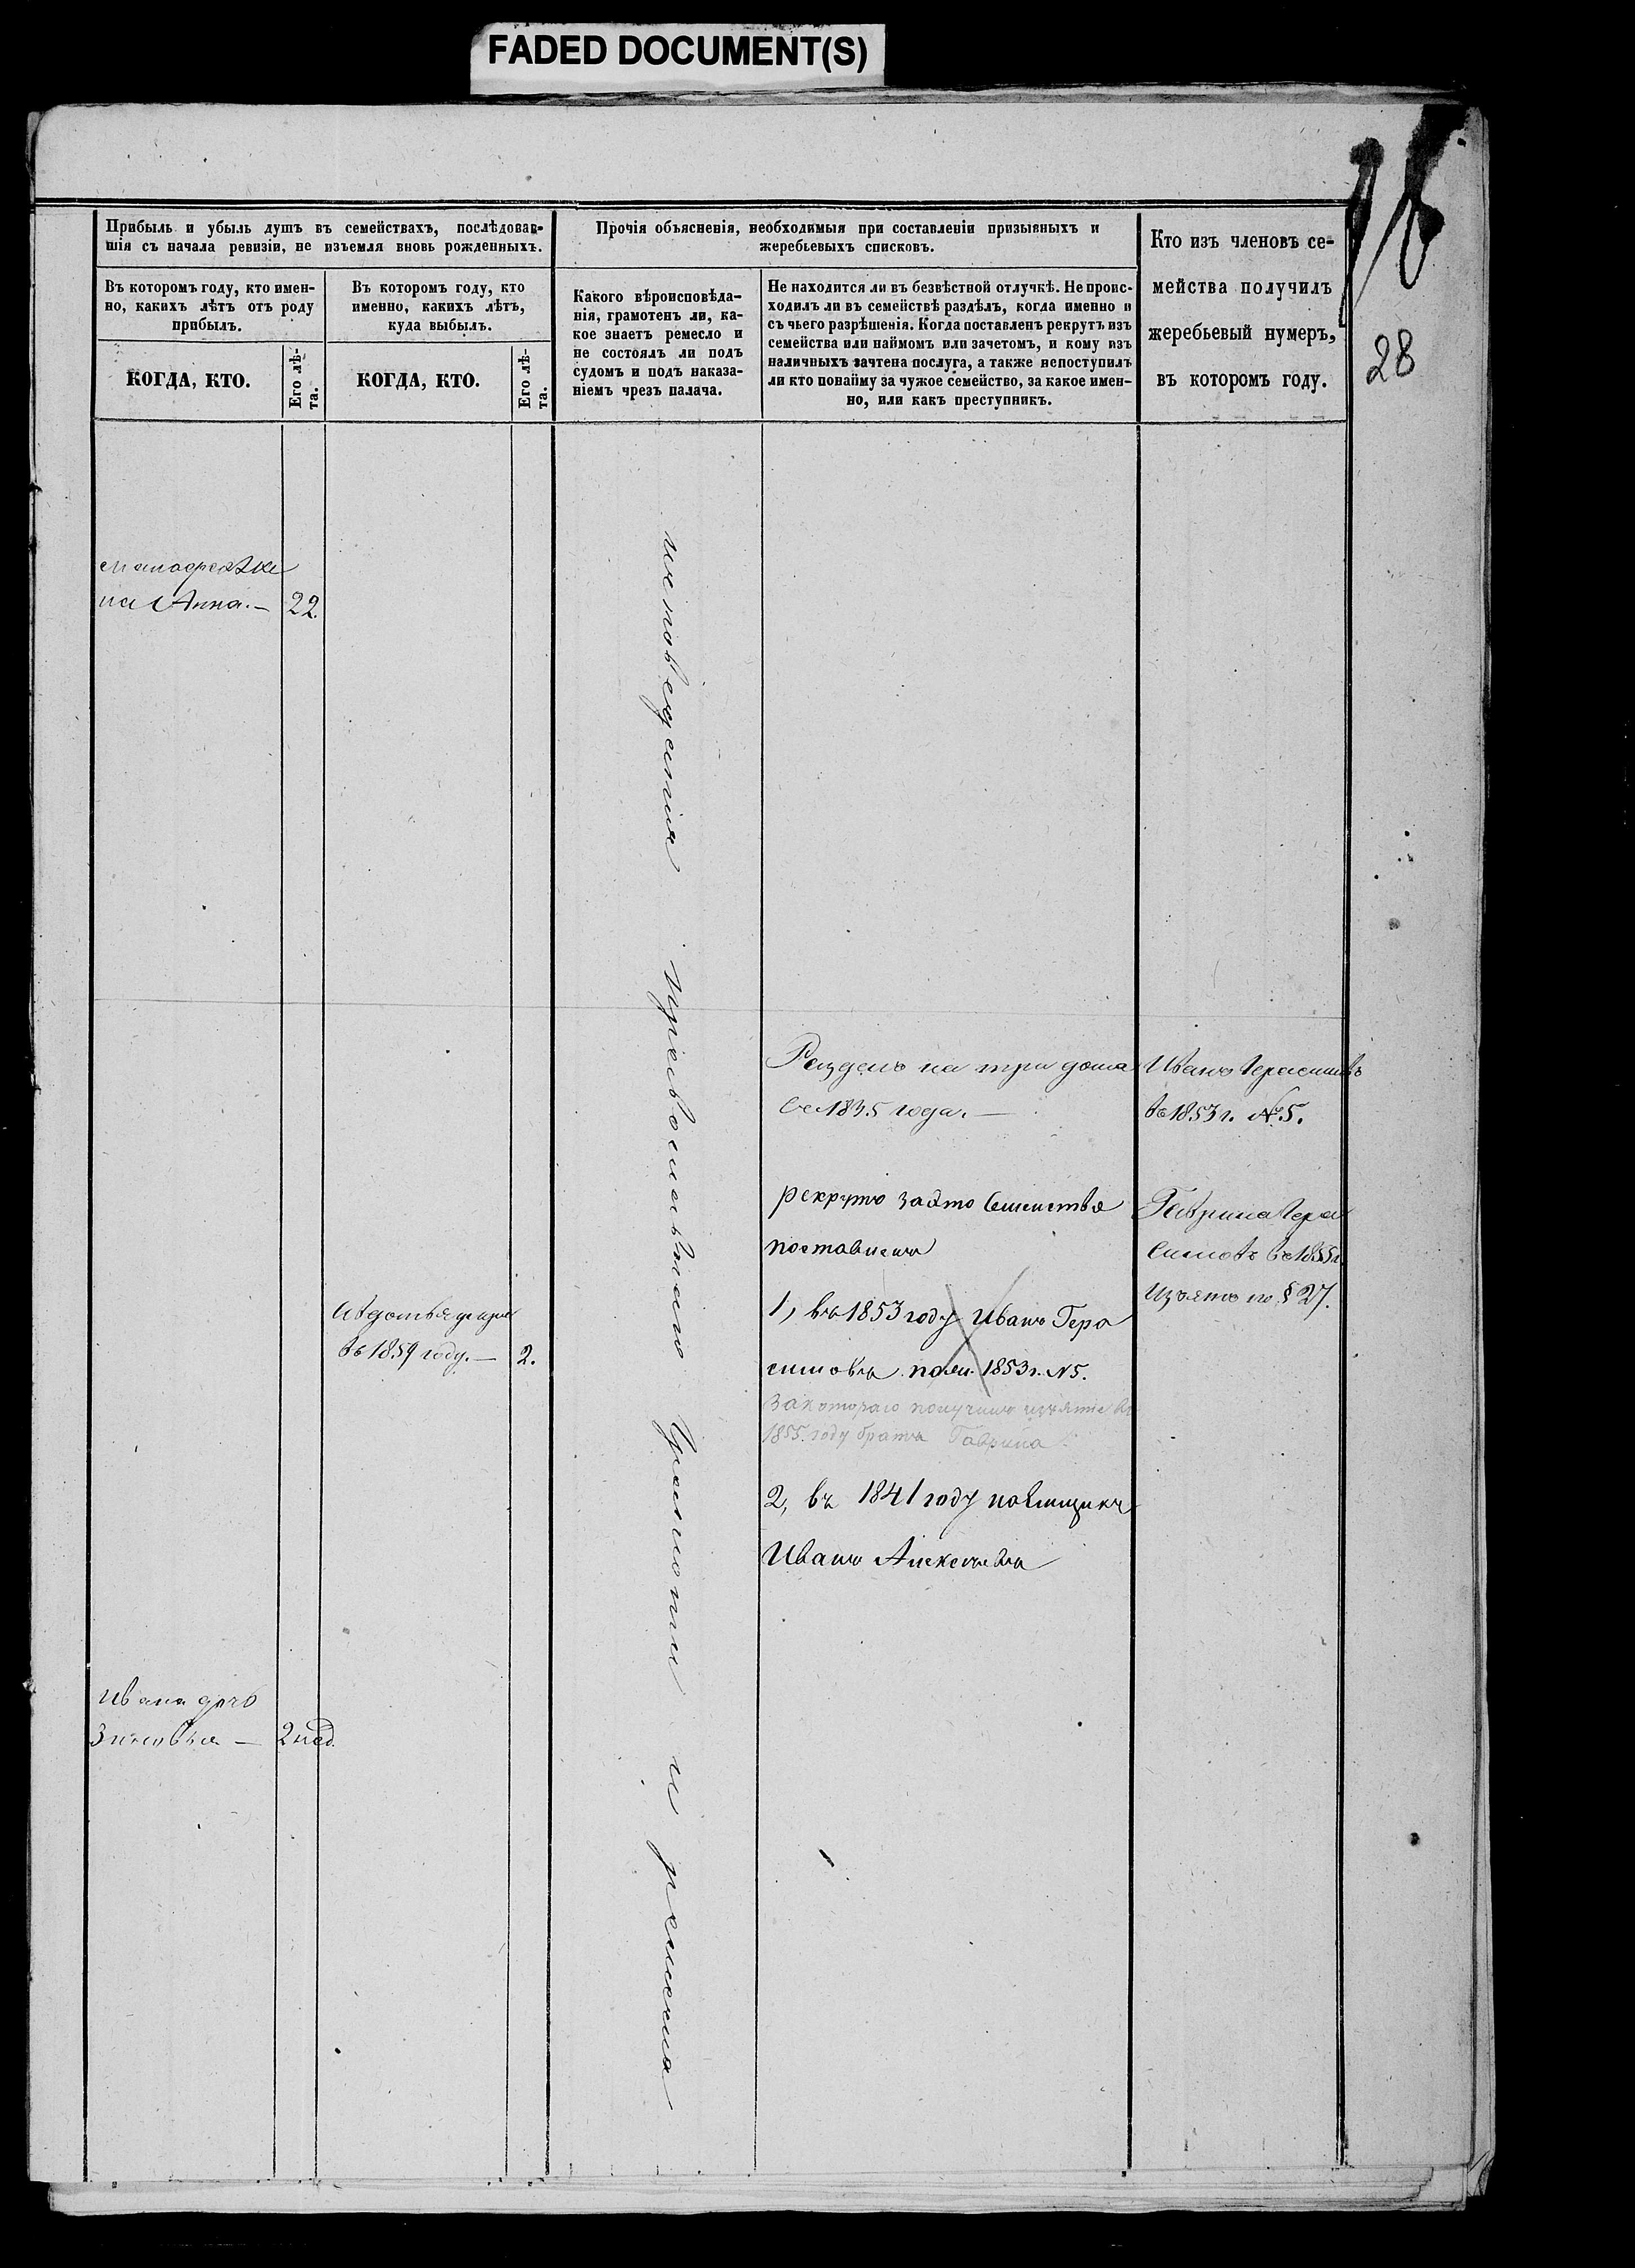 FADED DOCUMENT(S)
28
Прибыль и убыль душъ въ семействахъ, послѣдовав-
шія съ начала ревизіи, не изъемля вновь рожденныхъ.
Въ которомъ году, кто имен-
но, какихъ лѣтъ отъ роду
прибылъ.
КОГДА, КТО.
Его лѣ-
та.
Въ которомъ году, кто
именно, какихъ лѣтъ,
куда выбылъ.
КОГДА, КТО.
Его лѣ-
та.
Прочія объясненія, необходимыя при составленіи призывныхъ и
жеребьевыхъ списковъ.
Какого вѣроисповѣда-
нія, грамотенъ ли, ка-
кое знаетъ ремесло и
не состоялъ ли подъ
судомъ и подъ наказа-
ніемъ чрезъ палача.
Не находится ли въ безвѣстной отлучкѣ. Не проис-
ходилъ ли въ семействѣ раздѣлъ, когда именно и
съ чьего разрѣшенія. Когда поставленъ рекрутъ изъ
семейства или наймомъ или зачетомъ, и кому изъ
наличныхъ зачтена послуга, а также непоступилъ
ли кто понайму за чужое семейство, за какое имен-
но, или какъ преступникъ.
Кто изъ членовъ се-
мейства получилъ
жеребьевый нумеръ,
въ которомъ году.
на Анна. — 22.
въ 1859 году. — 2.
Ивана дочь
Зиновья — 2 нед.
исповеданія православнаго грамоти и ремесла
Разделъ на три дома
съ 1835 года. —
рекрутъ за это Семейства
поставленъ
1, въ 1853 году Иванъ Гера
симовъ 1853 г. N 5.
За котораго получилъ изъятіе въ
1855. году братъ Гаврила
2, въ 1841 году наемщикъ
Иванъ Алексеевъ
Иванъ Герасимовъ
въ 1853 г. № 5.
Гаврила Гера
симовъ въ 1855 г.
Изъятъ по § 27.